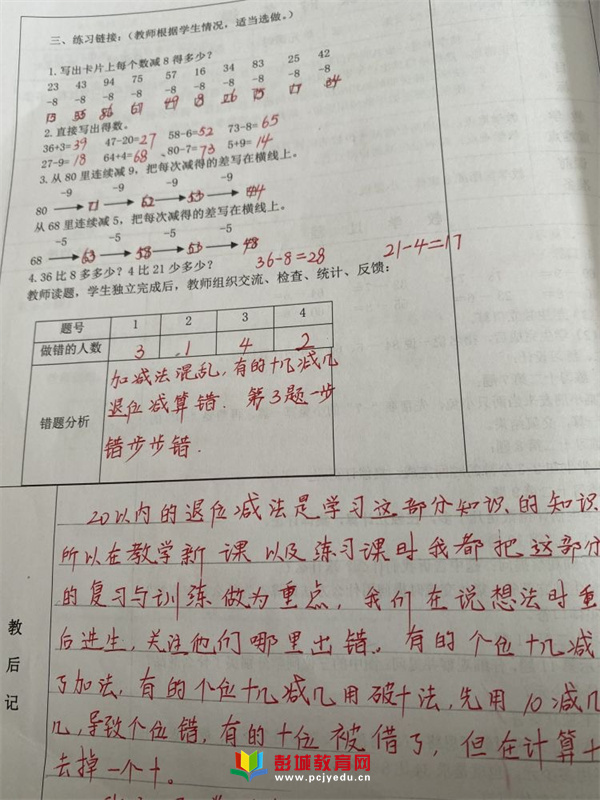 三、练习链接：（教师根据学生情况，适当选做。）
1.写出卡片上每个数减8得多少？
23 43 94 75 57 16 34 83 25 42
-8 -8 -8 -8 -8 -8 -8 -8 -8 -8
13 35 86 67 49 8 26 75 17 34
2.直接写出得数。
36+3=39 47-20=27 58-6=52 73-8=65
27-9=18 64+4=68 80-7=73 5+9=14
3.从80里连续减9，把每次减得的差写在横线上。
-9 -9 -9 -9
80 71 62 53 44
从68里连续减5，把每次减得的差写在横线上。
-5 -5 -5 -5
68 63 58 53 48
4.36比8多多少？4比21少多少？ 36-8=28 21-4=17
教师读题，学生独立完成后，教师组织交流、检查、统计、反馈：
题号 1 2 3 4
做错的人数 3 1 4 2
错题分析
加减法混乱，有的十几减几
退位减算错．第3题一步
错步步错．
教后记
20以内的退位减法是学习这部分知识的知识
所以在教学新课以及练习课时我都把这部分
的复习与训练做为重点，我们在说想法时重
后进生，关注他们哪里出错。有的个位十几减
了加法，有的个位十几减几用破十法，先用10减几
几，导致个位错，有的十位被借了，但在计算十
去掉一个十。
彭城教育网
www.pcjyedu.cn